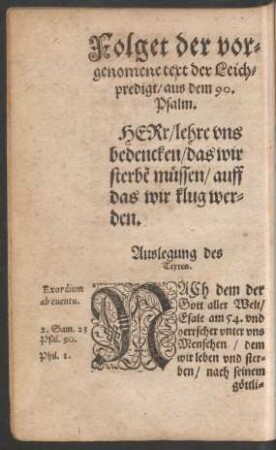 Folget der vor-
genomene text der Leich-
predigt/ aus dem 90.
Psalm.
HERr/ lehre vns
bedencken/ das wir
sterbē müssen/ auff
das wir klug wer-
den.
Auslegung des
Textes.
Exordium
ab euentu.
2. Sam. 23
Psal. 90.
Phil. 1.
NACh dem der
Gott aller Welt/
Esaie am 54. vnd
herrscher vnter vns
Menschen / dem
wir leben vnd ster-
ben/ nach seinem
göttli-